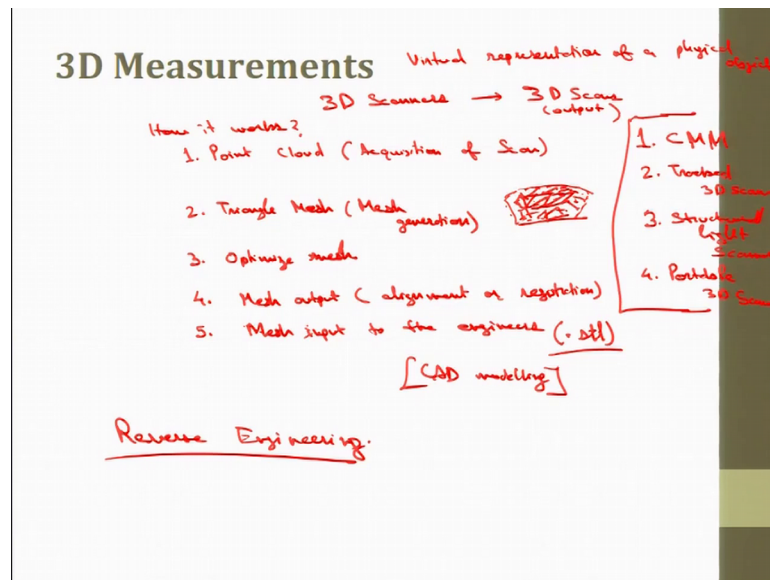 3D Measurements
Virtual representation of a physical object
3D Scanners → 3D Scans
(output)
How it works?
1. Point Cloud (Acquisition of Scan)
2. Triangle Mesh (Mesh generation)
3. Optimize mesh
4. Mesh output (alignment or registration)
5. Mesh input to the engineers (.stl)
[CAD modelling]
Reverse Engineering.
1. CMM
2. Tracked
3D Scan
3. Structured
light
Scann
4. Portable
3D Scann